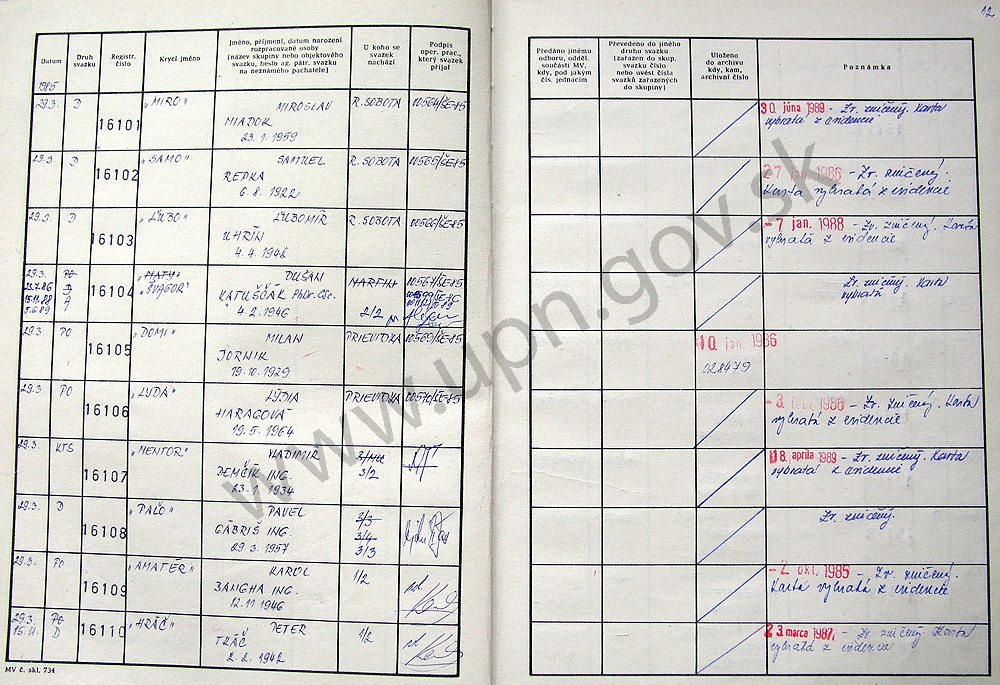 12
Datum
Druh svazku
Registr. číslo
Krycí jméno
Jméno, příjmení, datum narození
rozpracované osoby
(název skupiny nebo objektového
svazku, heslo ag. pátr. svazku
na neznámého pachatele)
U koho se
svazek
nachází
Podpis
oper. prac.,
který svazek
přijal
Předáno jinému
odboru, odděl.
součásti MV,
kdy, pod jakým
čís. jednacím
Převedeno do jiného
druhu svazku
(zařazen do skup.
svazku číslo
nebo uvést čísla
svazků zařazených
do skupiny)
Uloženo
do archivu
kdy, kam,
archivní číslo
Poznámka
1985
29.3. D 16101 "MIRO" MIROSLAV R. SOBOTA 00564/ŠE-85
MIADOK
23.1.1959
30. júna 1989 - Zv. zničený. Karta
vybratá z evidencie
29.3. D 16102 "SAMO" SAMUEL R. SOBOTA 00565/ŠE-85
REPKA
6.8.1922
27 jan. 1986 - Zv. zničený.
Karta vybratá z evidencie
29.3. D 16103 "ĽUBO" ĽUBOMÍR R. SOBOTA 00566/ŠE-85
UHRÍN
4.4.1946
- 7 jan. 1988 - Zv. zničený. Karta
vybratá z evidencie
29.3. PO 16104 "MATÚ" DUŠAN MARTIN 00567/ŠE-85
23.7.86 D "ŠVAGOR" KATUŠČÁK PhDr. CSc.
15.11.88 D
5.6.89 A 4.2.1946 2/2
Zv. zničený. Karta
vybratá
29.3. PO 16105 "DOMI" MILAN PRIEVIDZA 00569/ŠE-85
JORNIK
19.10.1929
10. jan. 1986
028479
29.3. PO 16106 "LYDA" LÝDIA PRIEVIDZA 00570/ŠE-85
HARAGOVÁ
19.5.1964
- 3. feb. 1986 - Zv. zničený. Karta
vybratá z evidencie
29.3. KTS 16107 "MENTOR" VLADIMIR
DEMČÍK ING. 3/2
23.1.1934
18. apríla 1989 - Zv. zničený. Karta
vybratá z evidencie
29.3. D 16108 "PAĽO" PAVEL 3/3
GÁBRIŠ ING. 3/4
29.3.1957 3/3
Zv. zničený.
29.3. PO 16109 "AMATÉR" KAROL 1/2
BANGHA ING.
12.11.1946
- 2. okt. 1985 - Zv. zničený.
Karta vybratá z evidencie
29.3. PO 16110 "HRÁČ" PETER 1/2
15.11. D TKÁČ
2.2.1942
23. marca 1987 - Zv. zničený. Karta
vybratá z evidencie
MV č. skl. 734
www.upn.gov.sk